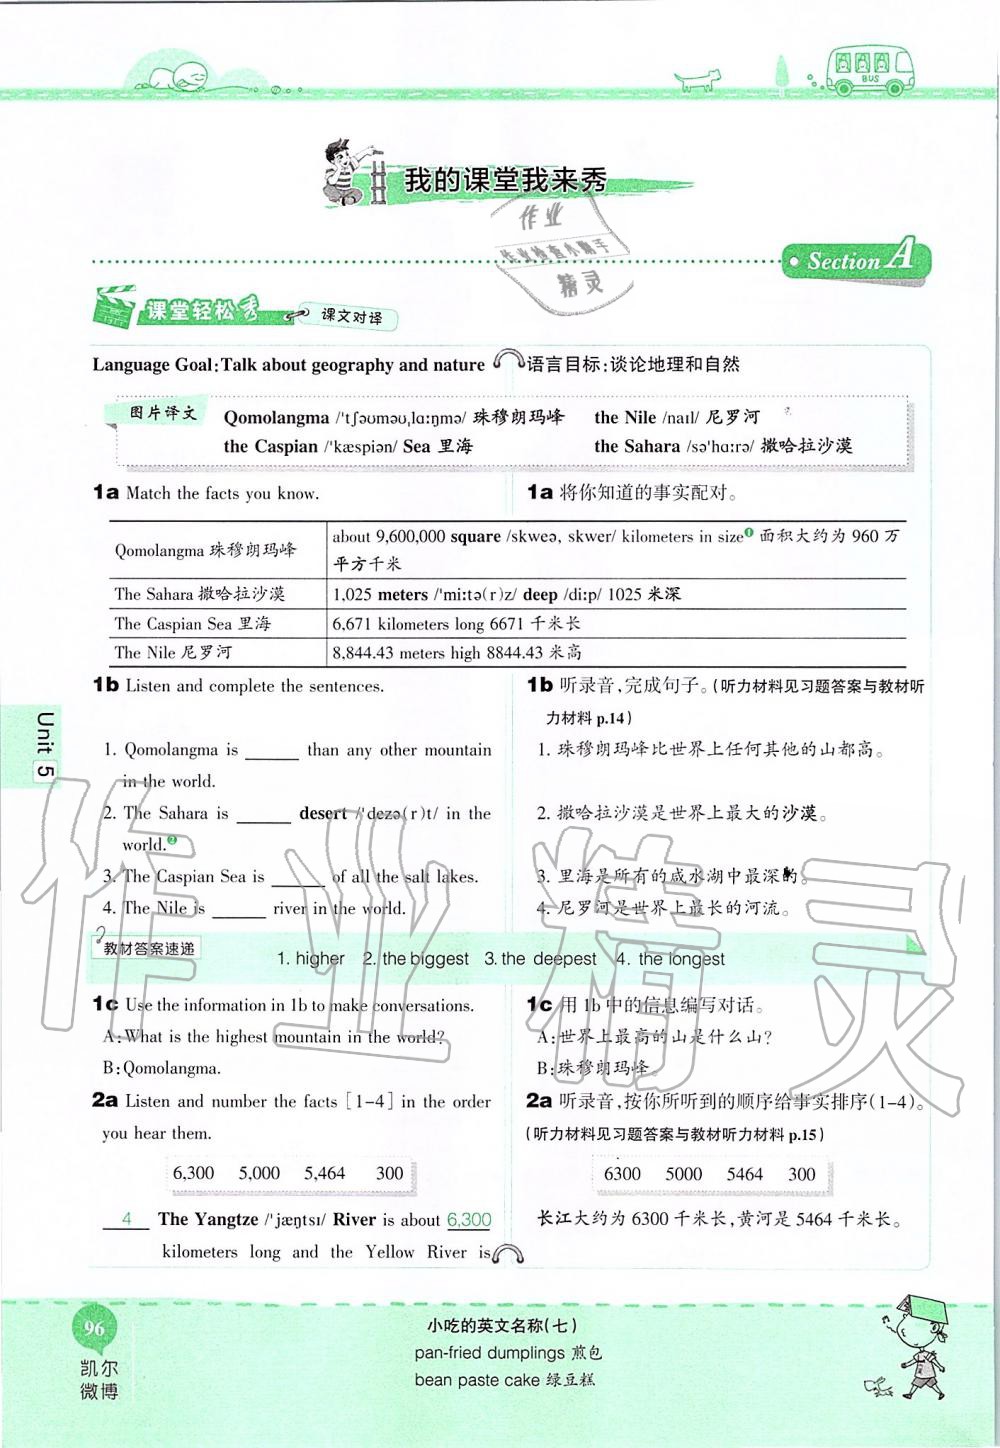 BUS
我的课堂我来秀
作业
作业检查小助手
精灵
Section A
课堂轻松秀
课文对译
Language Goal:Talk about geography and nature
语言目标:谈论地理和自然
图片译文
Qomolangma /ˈtʃəʊməʊˌlɑːŋmə/ 珠穆朗玛峰
the Nile /naɪl/ 尼罗河
the Caspian /ˈkæspiən/ Sea 里海
the Sahara /səˈhɑːrə/ 撒哈拉沙漠
1a Match the facts you know.
1a 将你知道的事实配对。
Qomolangma 珠穆朗玛峰
about 9,600,000 square /skweə, skwer/ kilometers in size❶ 面积大约为 960 万
平方千米
The Sahara 撒哈拉沙漠
1,025 meters /ˈmiːtə(r)z/ deep /diːp/ 1025 米深
The Caspian Sea 里海
6,671 kilometers long 6671 千米长
The Nile 尼罗河
8,844.43 meters high 8844.43 米高
1b Listen and complete the sentences.
1. Qomolangma is ______ than any other mountain
in the world.
2. The Sahara is ______ desert /ˈdezə(r)t/ in the
world.❷
3. The Caspian Sea is ______ of all the salt lakes.
4. The Nile is ______ river in the world.
1b 听录音,完成句子。(听力材料见习题答案与教材听
力材料 p.14)
1. 珠穆朗玛峰比世界上任何其他的山都高。
2. 撒哈拉沙漠是世界上最大的沙漠。
3. 里海是所有的咸水湖中最深的。
4. 尼罗河是世界上最长的河流。
教材答案速递
1. higher 2. the biggest 3. the deepest 4. the longest
1c Use the information in 1b to make conversations.
A:What is the highest mountain in the world?
B:Qomolangma.
1c 用 1b 中的信息编写对话。
A:世界上最高的山是什么山?
B:珠穆朗玛峰。
2a Listen and number the facts [1-4] in the order
you hear them.
6,300 5,000 5,464 300
4 The Yangtze /ˈjæŋtsɪ/ River is about 6,300
kilometers long and the Yellow River is
2a 听录音,按你所听到的顺序给事实排序(1-4)。
(听力材料见习题答案与教材听力材料 p.15)
6300 5000 5464 300
长江大约为 6300 千米长,黄河是 5464 千米长。
Unit 5
作业精灵
96
凯尔
微博
小吃的英文名称(七)
pan-fried dumplings 煎包
bean paste cake 绿豆糕